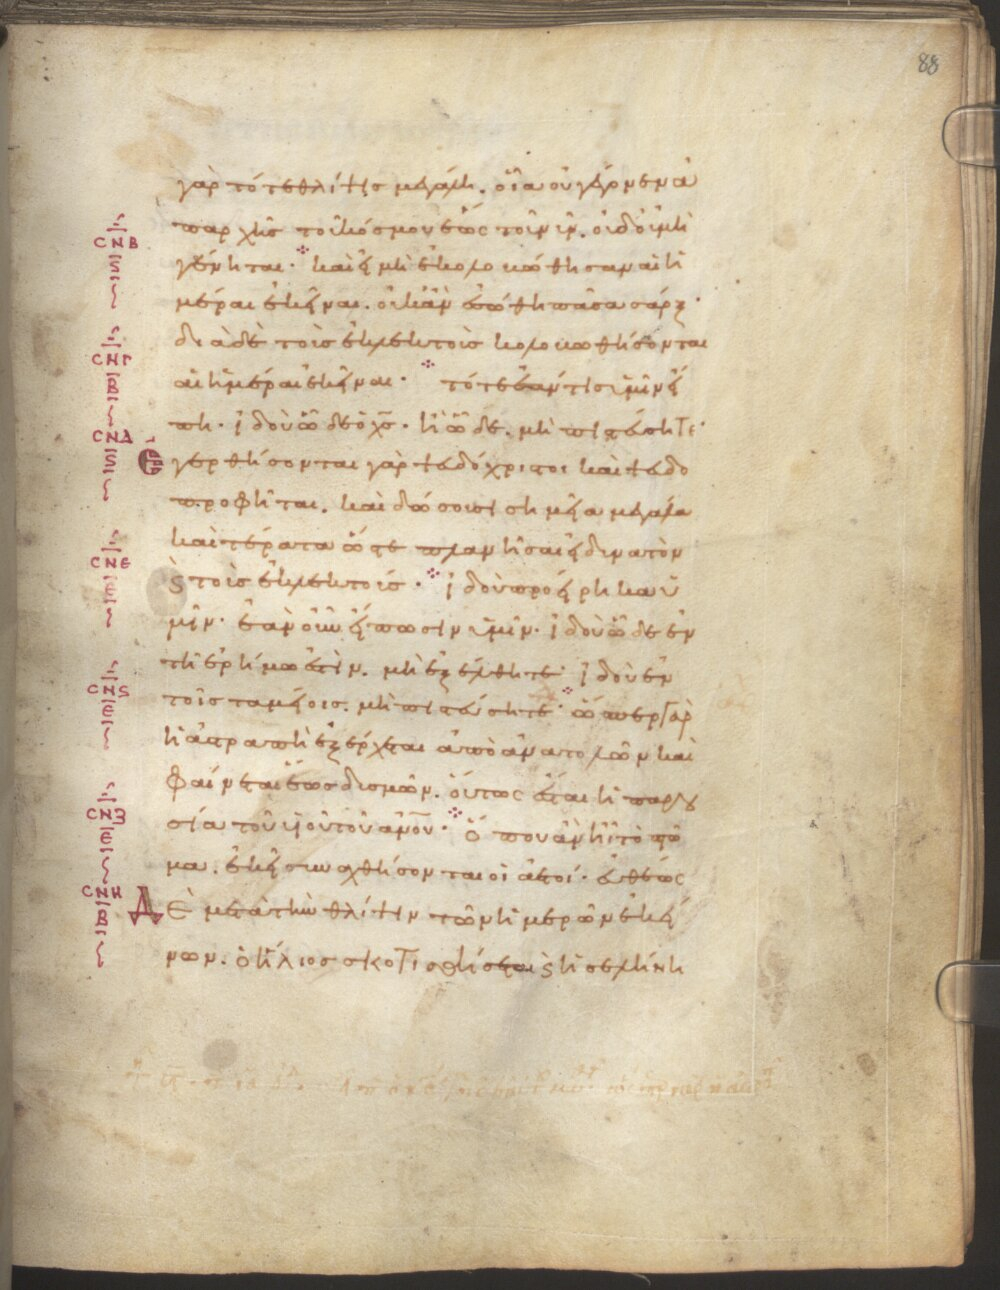 88
γὰρ τότε θλίψις μεγάλη. οἵα οὐ γέγονεν ἀ
παρχῆς τοῦ κόσμου ἕως τοῦ νῦν. οὐδ οὐ μὴ
CΝΒ
γένηται· καὶ εἰ μὴ ἐκολοβώθησαν αἱ ἡ
S
μέραι ἐκεῖναι. οὐκ ἂν ἐσώθη πᾶσα σάρξ·
διὰ δὲ τοὺς ἐκλεκτοὺς κολοβωθήσονται
CΝΓ
αἱ ἡμέραι ἐκεῖναι· τότε ἐάν τις ὑμῖν εἴ
Β
πη· ἰδοὺ ὧδε ὁ χς· ἢ ὧδε. μὴ πιστεύσητε·
CΝΔ
Ε
γερθήσονται γὰρ ψευδόχριστοι καὶ ψευδο
S
προφῆται. καὶ δώσουσι σημεῖα μεγάλα
καὶ τέρατα ὥστε πλανῆσαι εἰ δυνατὸν
CΝΕ
ϗ τοὺς ἐκλεκτούς· ἰδοὺ προείρηκα ὑ
Ε
μῖν· ἐὰν οὖν εἴπωσιν ὑμῖν· ἰδοὺ ὧδε ἐν
τῇ ἐρήμω ἐστὶν. μὴ ἐξέλθητε· ἰδοὺ ἐν
CΝS
τοῖς ταμείοις. μὴ πιστεύσητε· ὥσπερ γὰρ
Ε
ἡ ἀστραπὴ ἐξέρχεται ἀπὸ ἀνατολῶν καὶ
φαίνεται ἕως δυσμῶν. οὕτως ἔσται ἡ παρου
CΝΖ
σία τοῦ υἱοῦ τοῦ ανου· ὅπου ἂν ἦ τὸ πτῶ
Ε
μα. ἐκεῖ συναχθήσονται οἱ ἀετοί· εὐθέως
CΝΗ
ΔΕ μετὰ τὴν θλίψιν τῶν ἡμερῶν ἐκεί
Β
νων. ὁ ἥλιος σκοτισθήσεται ϗ ἡ σελήνη